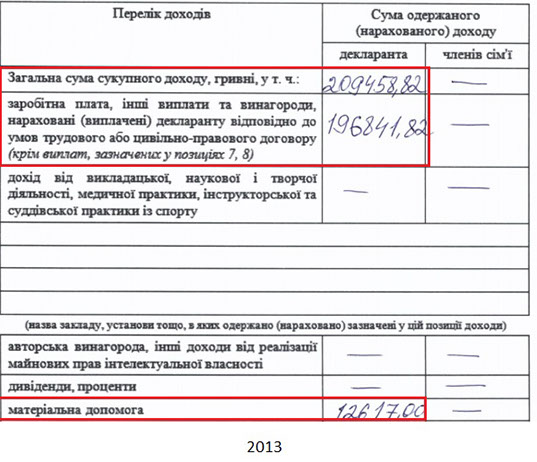 Перелік доходів
Сума одержаного
(нарахованого) доходу
декларанта
членів сім'ї
Загальна сума сукупного доходу, гривні, у т. ч.:
209458,82
—
заробітна плата, інші виплати та винагороди,
нараховані (виплачені) декларанту відповідно до
умов трудового або цивільно-правового договору
(крім виплат, зазначених у позиціях 7, 8)
196841,82
—
дохід від викладацької, наукової і творчої
діяльності, медичної практики, інструкторської та
суддівської практики із спорту
—
—
(назва закладу, установи тощо, в яких одержано (нараховано) зазначені у цій позиції доходи)
авторська винагорода, інші доходи від реалізації
майнових прав інтелектуальної власності
—
—
дивіденди, проценти
—
—
матеріальна допомога
12617,00
—
2013